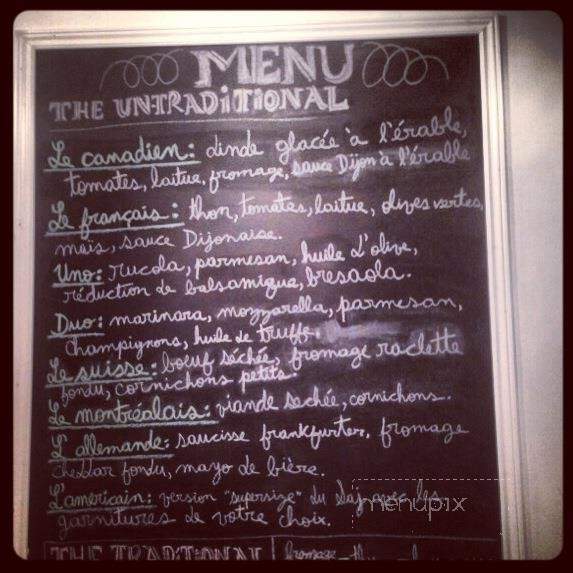 MENU
THE UNTRADITIONAL
Le canadien: dinde glacée à l'érable,
tomates, laitue, fromage, sauce Dijon à l'érable
Le français: thon, tomates, laitue, olives vertes,
maïs, sauce Dijonaise.
Uno: rucola, parmesan, huile d'olive,
réduction de balsamique, bresaola.
Duo: marinara, mozzarella, parmesan,
champignons, huile de truffe.
Le suisse: bœuf séchée, fromage raclette
fondu, cornichons petits.
Le montréalais: viande sechée, cornichons.
L'allemande: saucisse frankfurter, fromage
cheddar fondu, mayo de bière.
L'américain: version "supersize" du avec les
garnitures de votre choix.
menupix
THE TRADITIONAL fromage